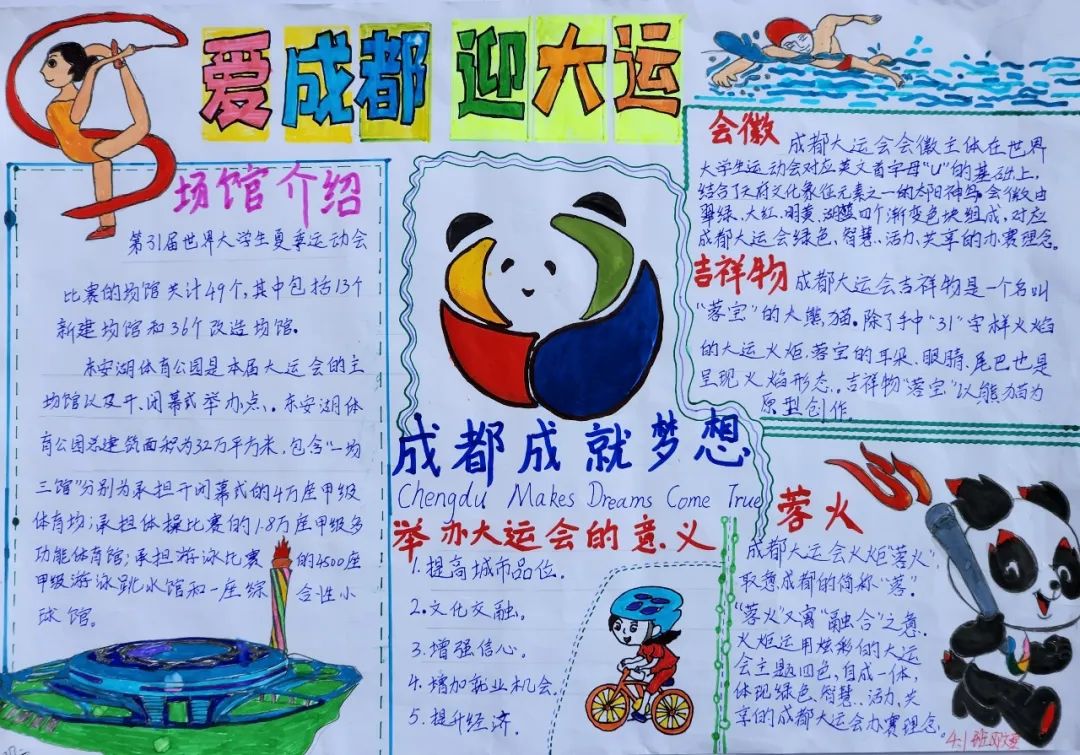 爱成都 迎大运
场馆介绍
第31届世界大学生夏季运动会
比赛的场馆共计49个,其中包括13个
新建场馆和36个改造场馆。
东安湖体育公园是本届大运会的主
场馆以及开、闭幕式举办点。东安湖体
育公园总建筑面积为32万平方米,包含“一场
三馆”分别为承担开闭幕式的4万座甲级
体育场;承担体操比赛的1.8万座甲级多
功能体育馆;承担游泳比赛的4500座
甲级游泳跳水馆和一座综合性小
球馆。
成都成就梦想
Chengdu Makes Dreams Come True
举办大运会的意义
1.提高城市品位。
2.文化交融。
3.增强信心。
4.增加就业机会。
5.提升经济.
会徽
成都大运会会徽主体在世界
大学生运动会对应英文首字母“U”的基础上,
结合了天府文化象征元素之一的太阳神鸟,会徽由
翠绿、大红、明黄、湖蓝四个渐变色块组成,对应
成都大运会绿色、智慧、活力、共享的办赛理念。
吉祥物
成都大运会吉祥物是一个名叫
“蓉宝”的大熊猫。除了手中“31”字样火焰
的大运火炬,蓉宝的耳朵、眼睛、尾巴也是
呈现火焰形态。吉祥物“蓉宝”以熊猫为
原型创作。
蓉火
成都大运会火炬“蓉火”
取意成都的简称“蓉”。
“蓉火”又寓“融合”之意.
火炬运用炫彩的大运
会主题四色,自成一体,
体现绿色、智慧、活力、共
享的成都大运会办赛理念。
4.1班